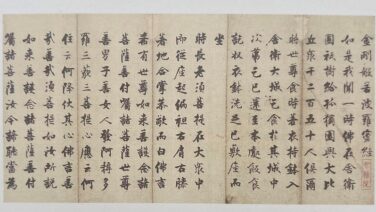 金剛般若波羅蜜經
如是我聞一時佛在舍衛
國祇樹給孤獨園與大比
丘衆千二百五十人俱爾
時世尊食時著衣持鉢入
舍衛大城乞食於其城中
次第乞已還至本處飯食
訖收衣鉢洗足已敷座而
坐
時長老須菩提在大衆中
即從座起偏袒右肩右膝
著地合掌恭敬而白佛言
希有世尊如來善護念諸
菩薩善付囑諸菩薩世尊
善男子善女人發阿耨多
羅三藐三菩提心應云何
住云何降伏其心佛言善
哉善哉須菩提如汝所說
如來善護念諸菩薩善付
囑諸菩薩汝今諦聽當為